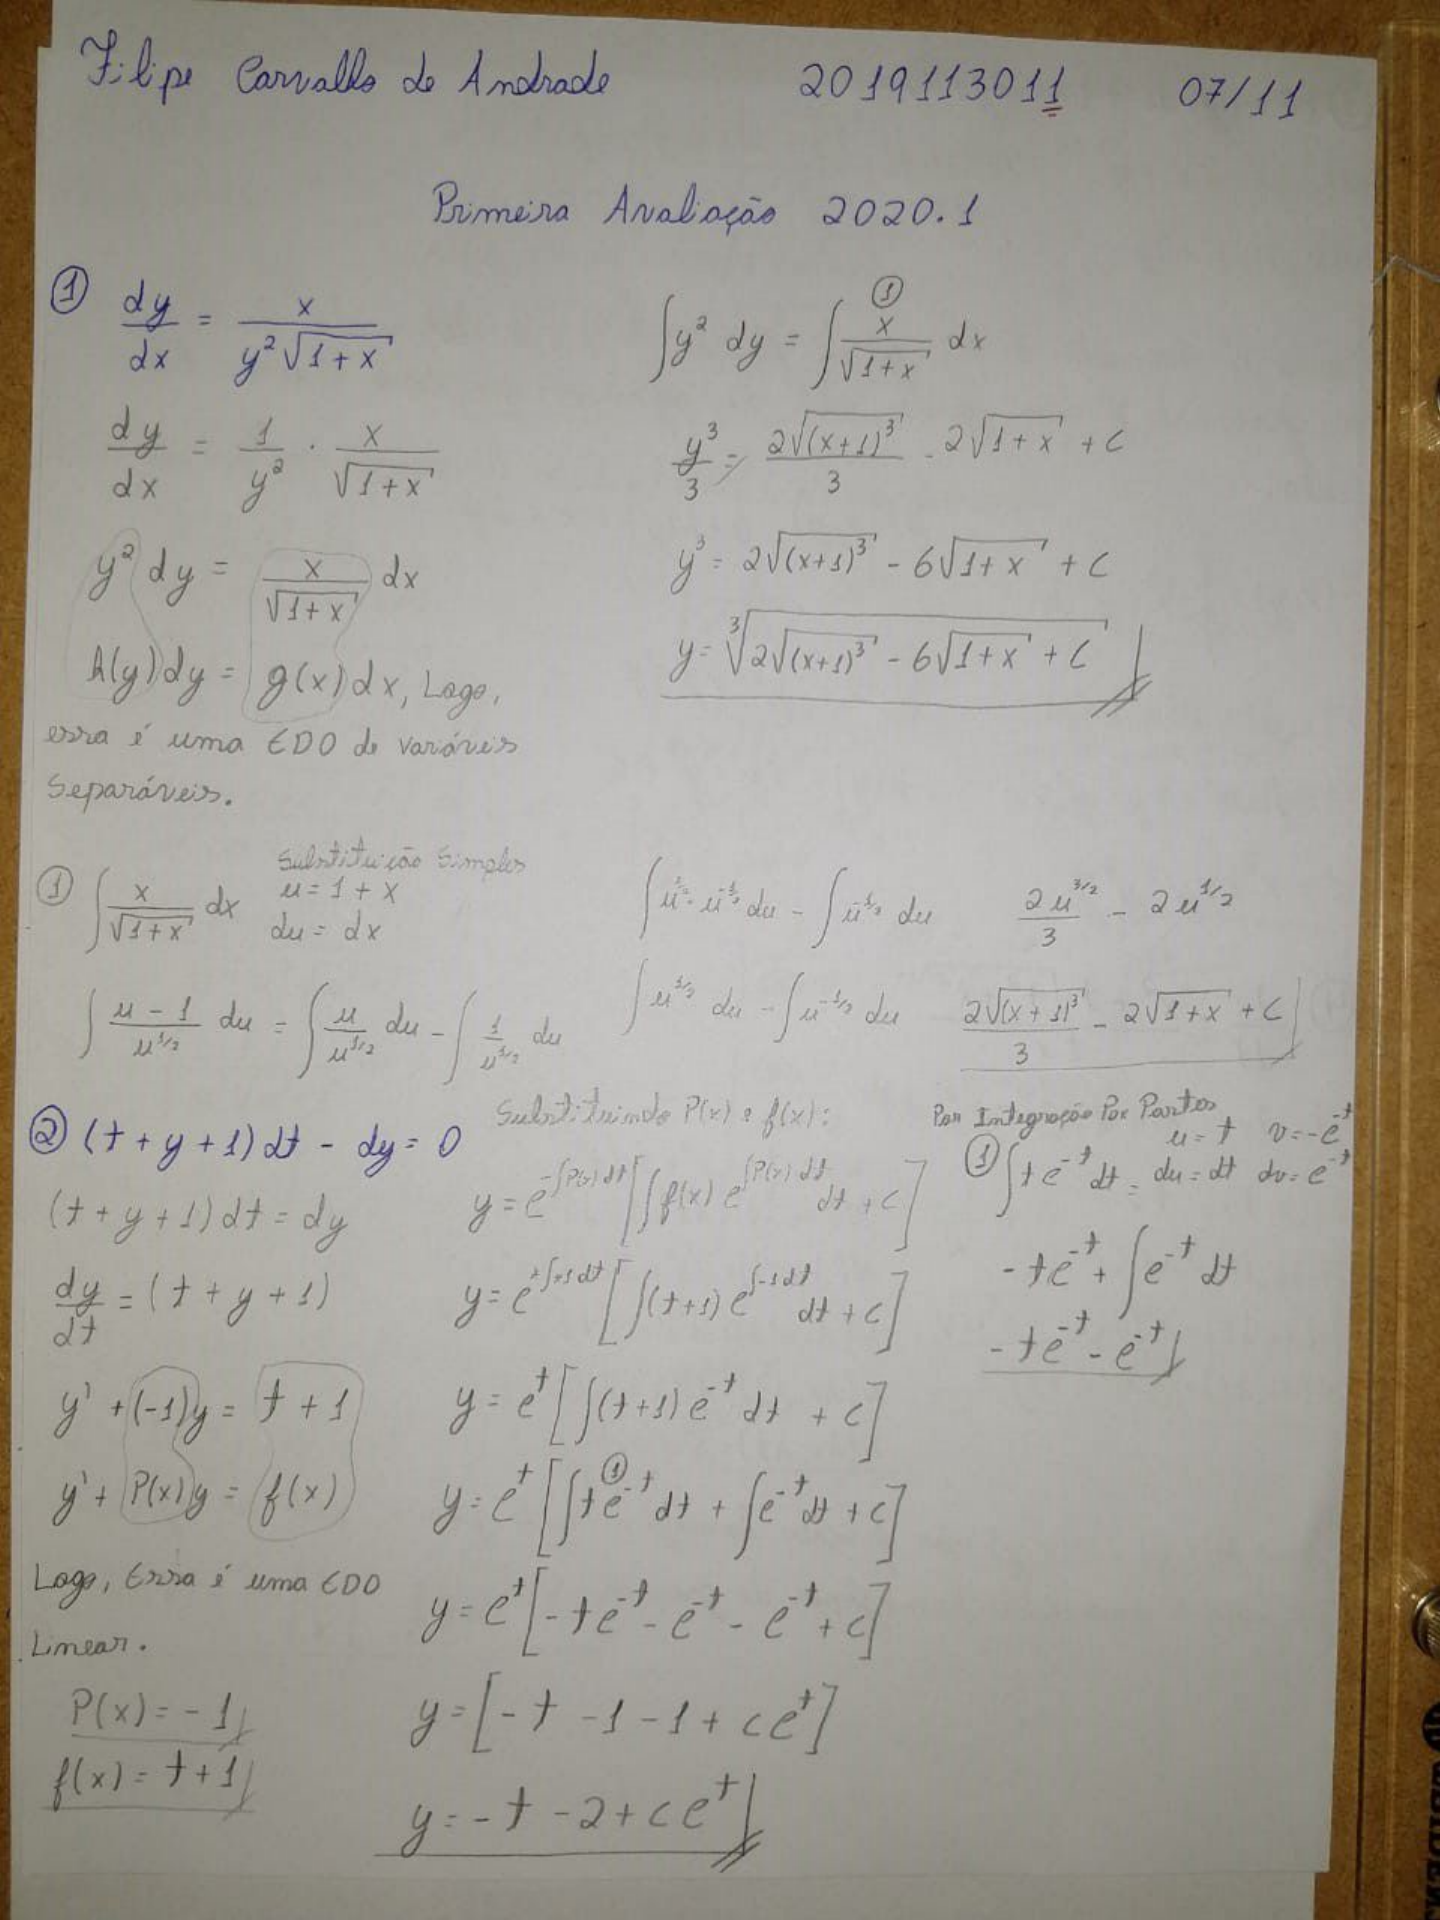 Filipe Carvalho de Andrade 2019113011 07/11
Primeira Avaliação 2020.1
① dy/dx = x/(y²√(1+x))
dy/dx = 1/y² · x/√(1+x)
y² dy = x/√(1+x) dx
h(y)dy = g(x)dx, Logo,
essa é uma EDO de varáveis
Separáveis.
∫y² dy = ∫ ① x/√(1+x) dx
y³/3 = 2√((x+1)³)/3 - 2√(1+x) + C
y³ = 2√((x+1)³) - 6√(1+x) + C
y = ∛(2√((x+1)³) - 6√(1+x) + C)
① ∫ x/√(1+x) dx
Substituição Simples
u = 1 + x
du = dx
∫ (u - 1)/u^(1/2) du = ∫ u/u^(1/2) du - ∫ 1/u^(1/2) du
∫ u^(2/2) · u^(-1/2) du - ∫ u^(-1/2) du
∫ u^(1/2) du - ∫ u^(-1/2) du
2u^(3/2)/3 - 2u^(1/2)
2√((x+1)³)/3 - 2√(1+x) + C
② (t + y + 1)dt - dy = 0
(t + y + 1)dt = dy
dy/dt = (t + y + 1)
y' + (-1)y = t + 1
y' + P(x)y = f(x)
Logo, Essa é uma EDO
Linear.
P(x) = -1
f(x) = t+1
Substituindo P(x) e f(x):
y = e^(-∫P(x)dt) [∫f(x) e^(∫P(x)dt) dt + C]
y = e^(+∫+1dt) [∫(t+1) e^(∫-1dt) dt + C]
y = e^t [∫(t+1) e^(-t) dt + C]
y = e^t [∫t ① e^(-t) dt + ∫e^(-t) dt + C]
y = e^t [-te^(-t) - e^(-t) - e^(-t) + C]
y = [-t - 1 - 1 + ce^t]
y = -t - 2 + ce^t
Por Integração Por Partes
u = t v = -e^(-t)
① ∫te^(-t) dt = du = dt dv = e^(-t)
-te^(-t) + ∫e^(-t) dt
-te^(-t) - e^(-t)